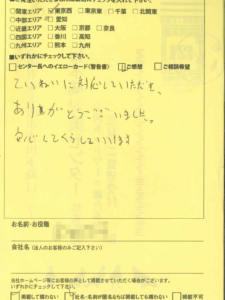 ○関東エリア ☑東京西 □東京東 □千葉 □北関東
○中部エリア □愛知
○近畿エリア □大阪 □京都 □奈良
○四国エリア □香川 □高知
○九州エリア □熊本 □九州
■いずれかにチェックして下さい。
□センター長へのイエローカード(警告書) □ご感想 □ご相談希望
ていねいに対応していただき、
ありがとうございました。
安心してくらしています
お名前・お役職
会社名(法人のお客様のみご記入下さい)
当社ホームページ等にお客様の声として掲載させていただく場合がございます。
いずれかにチェックして下さい。
□掲載して構わない □社名・名前が匿名ならば掲載しても構わない □掲載不可